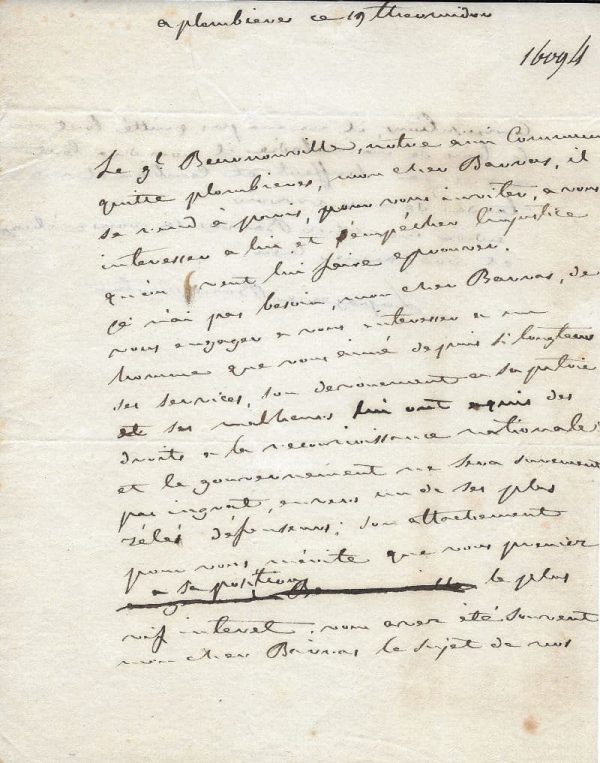 a plombieres ce 19 thermidor
16094
Le gl Beurnonville, notre ami Commun
quitte plombieres, mon cher Barras, il
se rend a paris, pour vous inviter, a vous
interesser a lui et d'empecher l'injustice
qu'on veut lui faire eprouver.
je n'ai pas besoin, mon cher Barras, de
vous engager a vous interesser a un
homme que vous aimé depuis si longtems
ses services, son devouement a sa patrie
et ses malheurs lui ont aquis des
droits a la reconnoissance nationale
et le gouvernement ne sera surement
pas ingrat, envers un de ses plus
zélés défenseurs; son attachement
pour vous mérite que vous preniez
a sa position le plus
vif interet, vous avez été souvent
mon cher Barras le sujet de nos